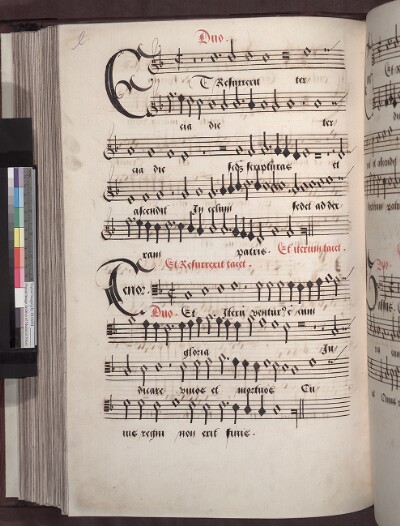 Duo.
Et Resurrexit ter
cia die ter
cia die scdz scripturas et
ascendit In celum sedet ad dex
ram patris. Et iterum tacet.
Et Resurrexit tacet.
Tenor.
Duo. Et Iterū venturꝰ ē cum
gloria Iu
dicare vivos et mortuos Cu
ius regni non erit finis.